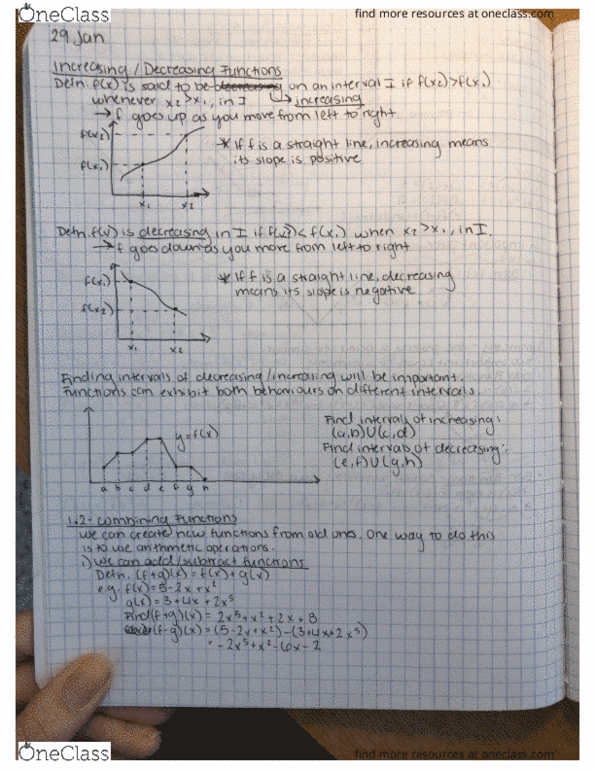 OneClass
find more resources at oneclass.com
29 Jan
Increasing / Decreasing Functions
Defn. f(x) is said to be decreasing on an interval I if f(x₂)>f(x₁)
whenever x₂>x₁, in I → increasing
→ f goes up as you move from left to right
f(x₂)
* If f is a straight line, increasing means
its slope is positive
f(x₁)
x₁ x₂
Defn. f(x) is decreasing in I if f(x₂)<f(x₁) when x₂>x₁, in I.
→ f goes down as you move from left to right
f(x₁)
* If f is a straight line, decreasing
means its slope is negative
f(x₂)
x₁ x₂
Finding intervals of decreasing/increasing will be important.
Functions can exhibit both behaviours on different intervals.
y=f(x)
Find intervals of increasing:
(a,b)U(c,d)
Find intervals of decreasing:
(e,f)U(g,h)
a b c d e f g h
1.2- Combining Functions
We can create new functions from old ones. One way to do this
is to use arithmetic operations.
i) We can add/subtract functions
Defn. (f+g)(x) = f(x)+g(x)
e.g. f(x)=5-2x+x²
g(x)=3+4x+2x⁵
Find (f+g)(x) = 2x⁵+x²+2x+8
(f-g)(x)=(5-2x+x²)-(3+4x+2x⁵)
= -2x⁵+x²-6x-2
OneClass
find more resources at oneclass.com